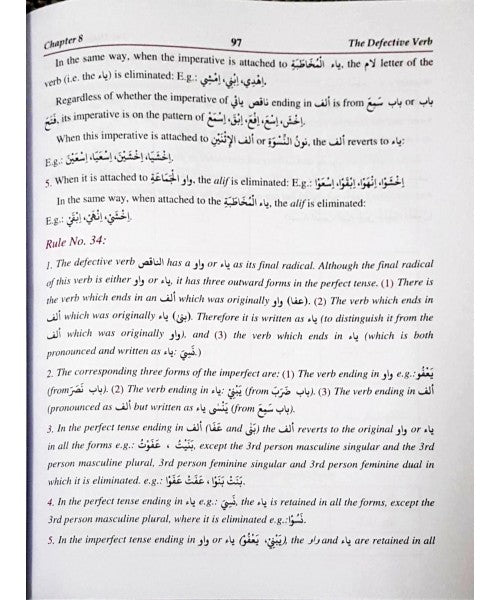 Chapter 8 97 The Defective Verb
In the same way, when the imperative is attached to يَاء الْمُخَاطَبَةِ, the لام letter of the
verb (i.e. the ياء) is eliminated: E.g.: اِهْدِي، اِبْنِي، اِمْشِي.
Regardless of whether the imperative of ناقص يائي ending in ألف is from باب سَمِعَ or باب
فَتَحَ, its imperative is on the pattern of اِخْشَ، اِسْعَ، اِبْقَ، اِسْمَعْ.
When this imperative is attached to ألف الاِثْنَيْنِ or نونُ النِّسْوَةِ, the ألف reverts to ياء:
E.g.: اِخْشَيَا، اِخْشَيْنَ، اِسْعَيَا، اِسْعَيْنَ.
5. When it is attached to واو الجَمَاعَةِ, the alif is eliminated: E.g.: اِخْشَوْا، اِنْهَوْا، اِبْقَوْا، اِسْعَوْا
In the same way, when attached to the ياء الْمُخَاطَبَةِ, the alif is eliminated:
E.g.: اِخْشَيْ، اِنْهَيْ، اِبْقَيْ.
Rule No. 34:
1. The defective verb الناقص has a واو or ياء as its final radical. Although the final radical
of this verb is either واو or ياء, it has three outward forms in the perfect tense. (1) There is
the verb which ends in an ألف which was originally واو (عفا). (2) The verb which ends in
ألف which was originally ياء (بنى). Therefore it is written as ياء (to distinguish it from the
ألف which was originally واو), and (3) the verb which ends in ياء (which is both
pronounced and written as ياء: نَسِيَ.)
2. The corresponding three forms of the imperfect are: (1) The verb ending in واو e.g.: يَعْفُو
(from باب نَصَرَ). (2) The verb ending in ياء: يَبْنِيْ (from باب ضَرَبَ). (3) The verb ending in ألف
(pronounced as ألف but written as ياء يَنْسَى (from باب سَمِعَ).
3. In the perfect tense ending in ألف (عَفَا and بَنَى) the ألف reverts to the original واو or ياء
in all the forms e.g.: بَنَيْتُ ، عَفَوْتُ, except the 3rd person masculine singular and the 3rd
person masculine plural, 3rd person feminine singular and 3rd person feminine dual in
which it is eliminated. e.g.: بَنَتْ بَنَوْا، عَفَتْ عَفَوْا.
4. In the perfect tense ending in ياء e.g.: نَسِيَ, the ياء is retained in all the forms, except the
3rd person masculine plural, where it is eliminated e.g.: نَسُوْا.
5. In the imperfect tense ending in واو or ياء (يَبْنِيْ، يَعْفُوْ), the واو and ياء are retained in all